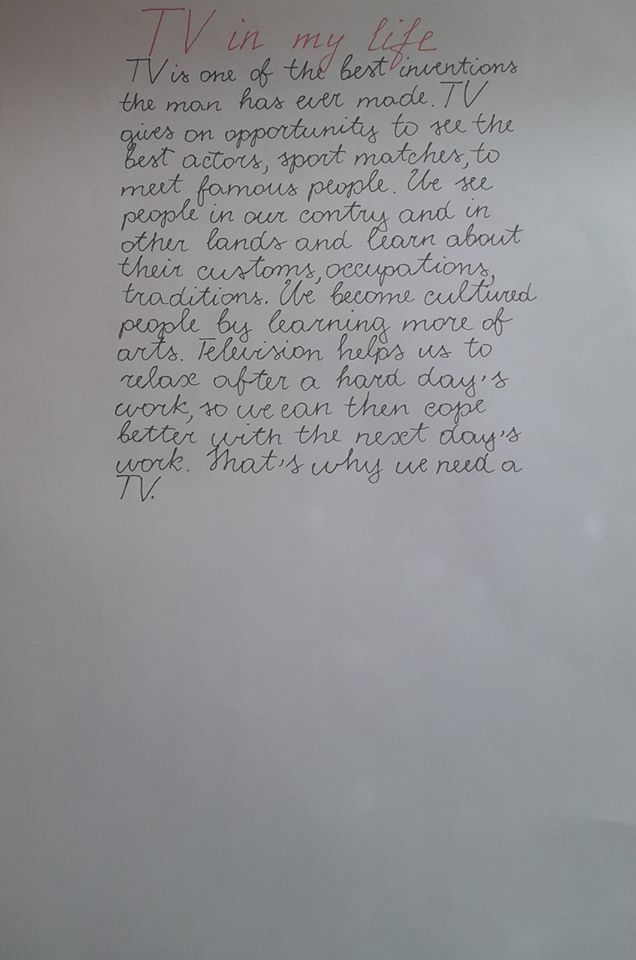 TV in my life
TV is one of the best inventions
the man has ever made. TV
gives on opportunity to see the
best actors, sport matches, to
meet famous people. We see
people in our contry and in
other lands and learn about
their customs, occupations,
traditions. We become cultured
people by learning more of
arts. Television helps us to
relax after a hard day's
work, so we can then cope
better with the next day's
work. That's why we need a
TV.